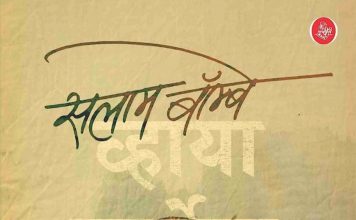 सलाम बॉम्बे
व्हाया